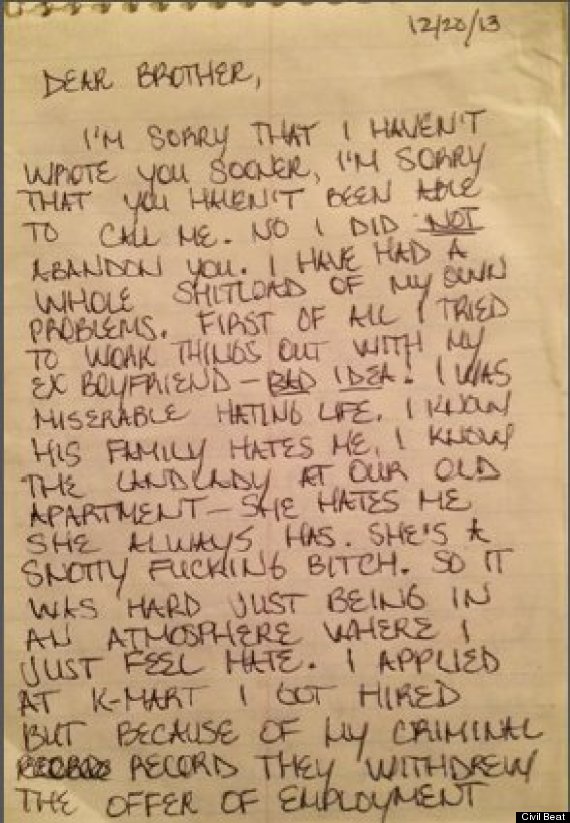 12/20/13
DEAR BROTHER,
I'M SORRY THAT I HAVEN'T
WROTE YOU SOONER, I'M SORRY
THAT YOU HAVEN'T BEEN ABLE
TO CALL ME. NO I DID NOT
ABANDON YOU. I HAVE HAD A
WHOLE SHITLOAD OF MY OWN
PROBLEMS. FIRST OF ALL I TRIED
TO WORK THINGS OUT WITH MY
EX BOYFRIEND - BAD IDEA! I WAS
MISERABLE HATING LIFE. I KNOW
HIS FAMILY HATES ME. I KNOW
THE LANDLADY AT OUR OLD
APARTMENT - SHE HATES ME
SHE ALWAYS HAS. SHE'S A
SNOTTY FUCKING BITCH. SO IT
WAS HARD JUST BEING IN
AN ATMOSPHERE WHERE I
JUST FEEL HATE. I APPLIED
AT K-MART I GOT HIRED
BUT BECAUSE OF MY CRIMINAL
RECORD THEY WITHDREW
THE OFFER OF EMPLOYMENT
Civil Beat